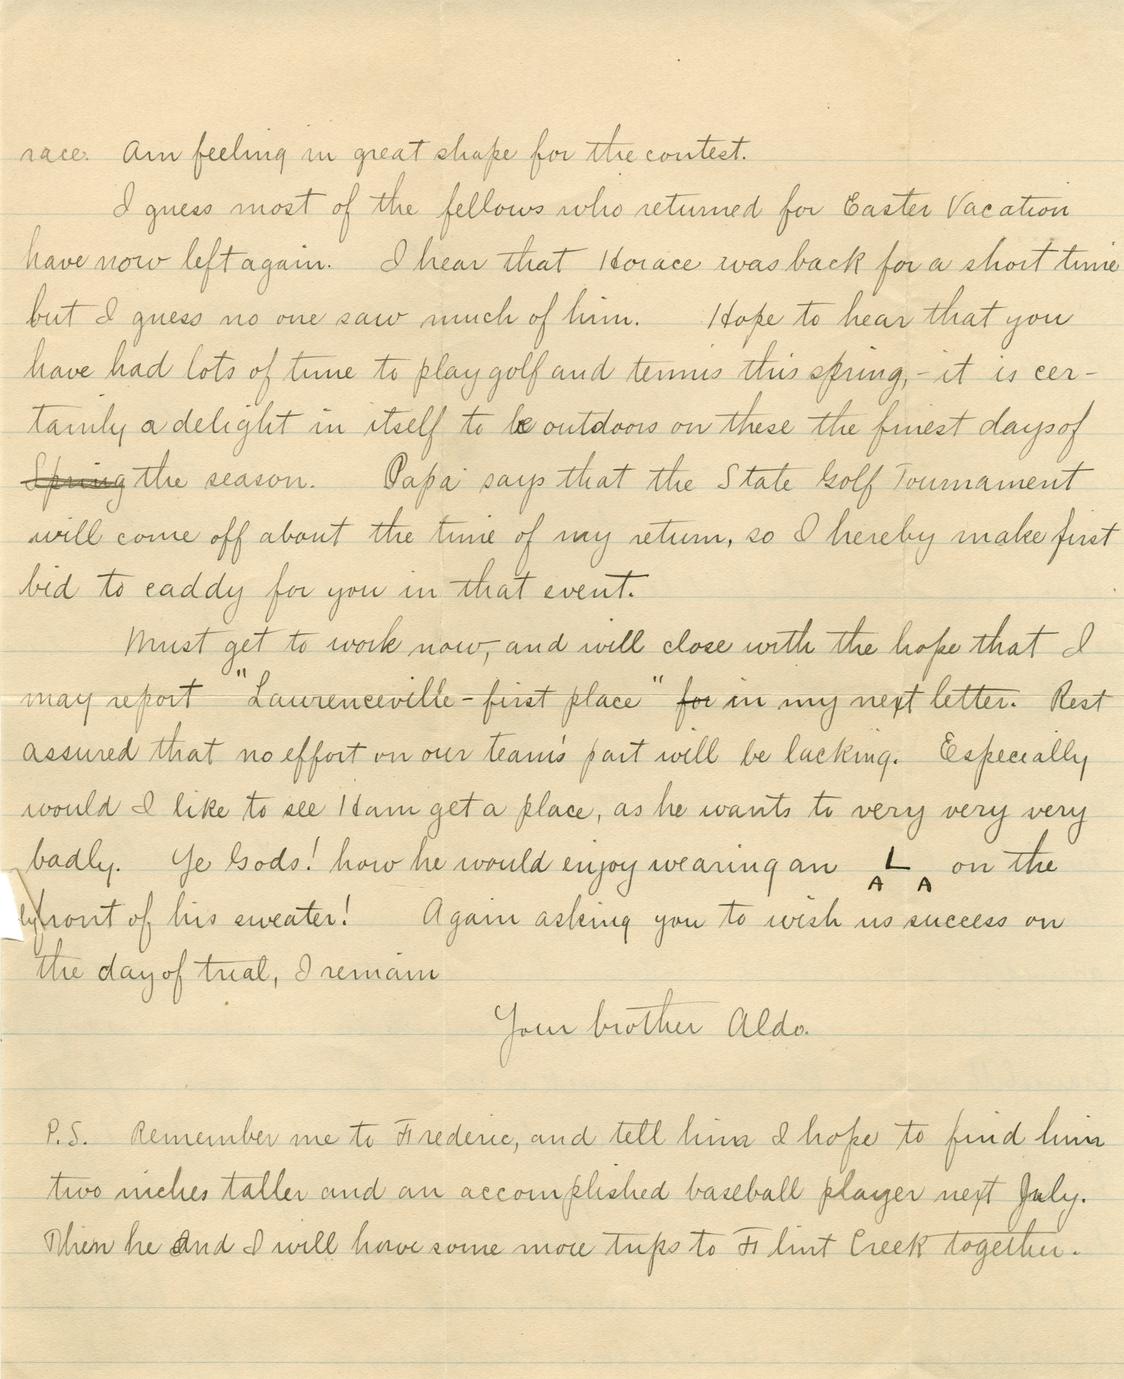 race. Am feeling in great shape for the contest.
I guess most of the fellows who returned for Easter Vacation
have now left again. I hear that Horace was back for a short time
but I guess no one saw much of him. Hope to hear that you
have had lots of time to play golf and tennis this spring,- it is cer-
tainly a delight in itself to be outdoors on these the finest days of
Spring the season. Papa says that the State Golf Tournament
will come off about the time of my return, so I hereby make first
bid to caddy for you in that event.
Must get to work now, and will close with the hope that I
may report "Lawrenceville - first place" for in my next letter. Rest
assured that no effort on our team's part will be lacking. Especially
would I like to see Ham get a place, as he wants to very very very
badly. Ye Gods! how he would enjoy wearing an L on the
A A
front of his sweater! Again asking you to wish us success on
the day of trial, I remain
Your brother Aldo.
P.S. Remember me to Frederic, and tell him I hope to find him
two inches taller and an accomplished baseball player next July.
Then he and I will have some more trips to Flint Creek together.